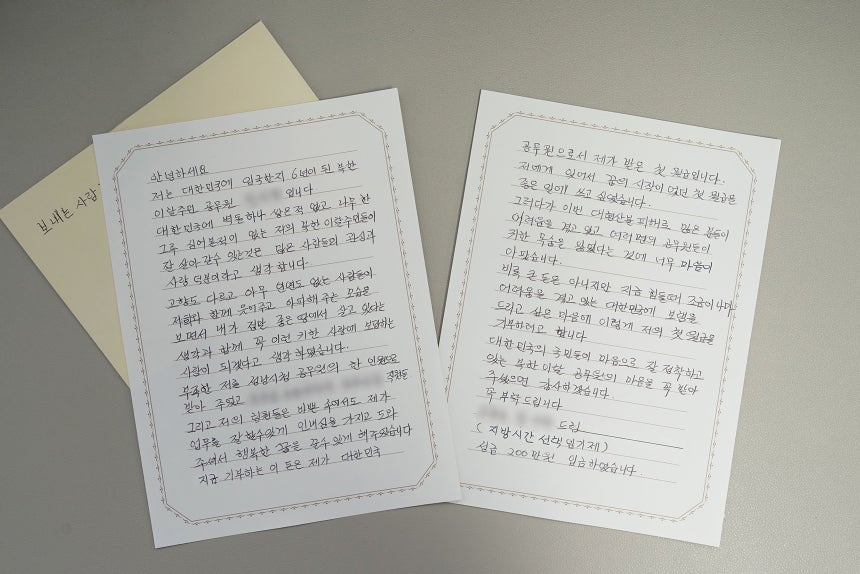 보내는 사람
안녕하세요
저는 대한민국에 입국한지 6년이 된 북한
이탈주민 공무원 입니다
대한민국에 벽돌하나 쌓은적 없고 나무 한
그루 심어본적이 없는 저의 북한이탈주민들이
잘 살아 갈수 있는것은 많은 사람들의 관심과
사랑 덕분이라고 생각 합니다.
고향도 다르고 아무 연연도 없는 사람들이
저희와 함께 웃어주고 아파해 주는 모습을
보면서 내가 정말 좋은 땅에서 살고 있다는
생각과 함께 꼭 이런 귀한 사랑에 보답하는
사람이 되겠다고 생각 하였습니다.
부족한 저를 성남시청 공무원의 한 인원으로
받아 주었고 직원들
그리고 저의 팀원들은 바쁜 속에서도 제가
업무를 잘 할수있게 인내심을 가지고 도와
주셔서 행복한 꿈을 꿀수 있게 해주었습니다
지금 기부하는 이 돈은 제가 대한민국
공무원으로서 제가 받은 첫 월급입니다.
저에게 있어서 꿈의 시작이 였던 첫 월급은
좋은 일에 쓰고 싶었습니다.
그러다가 이번 대형산불 피해로 많은 분들이
어려움을 겪고 있고 여러명의 공무원들이
귀한 목숨을 잃었다는 것에 너무 마음이
아팠습니다.
비록 큰 돈은 아니지만 지금 힘들때 조금이나마
어려움을 겪고 있는 대한민국에 보탬을
드리고 싶은 마음에 이렇게 저의 첫 월급을
기부하려고 합니다
대한민국의 국민들이 마음으로 잘 정착하고
있는 북한 이탈 공무원의 마음을 꼭 받아
주셨으면 감사하겠습니다
꼭 부탁드립니다
드림
( 지방시간 선택 임기제 )
성금 200만원 입금하였습니다